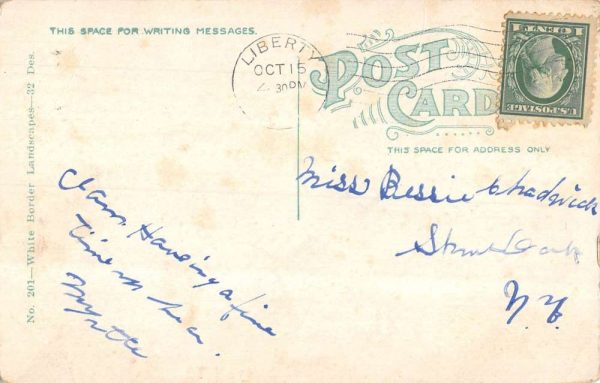 THIS SPACE FOR WRITING MESSAGES.
LIBERTY
OCT 15
30PM
POST CARD
U.S.POSTAGE
1 CENT 1
THIS SPACE FOR ADDRESS ONLY
Miss Bessie Chadwick
N.Y.
Having a fine
time
Myrtle
No. 201—White Border Landscapes—32 Des.